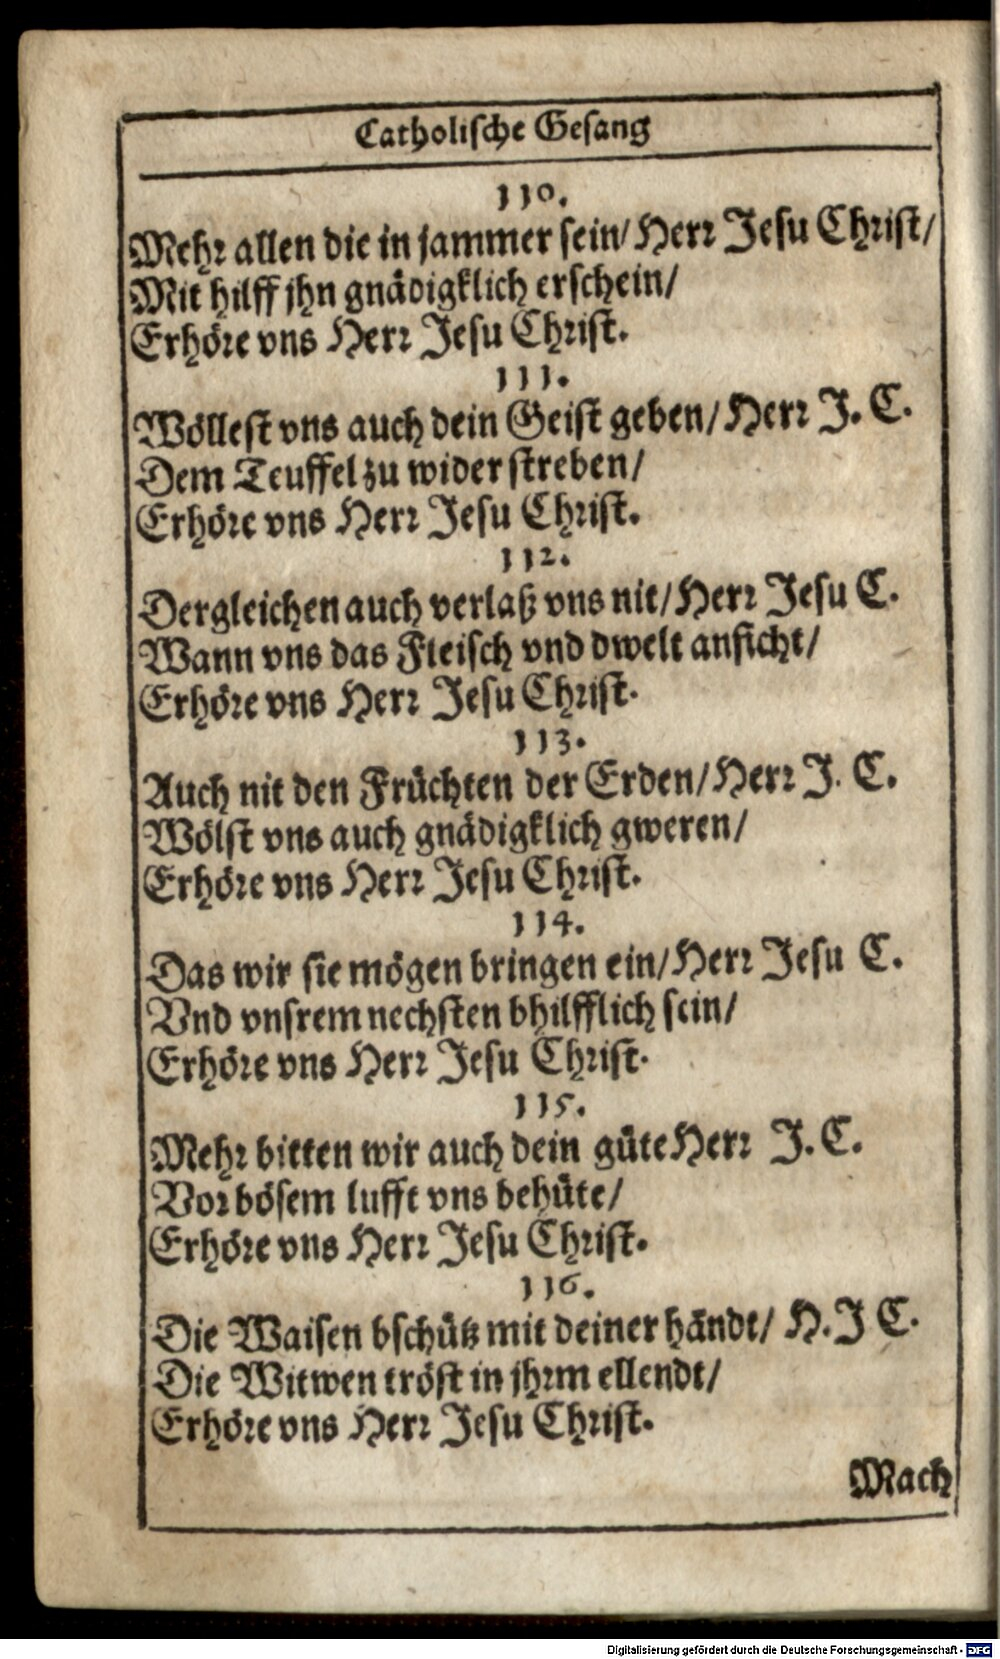 Catholische Gesang
110.
Mehr allen die in jammer sein/ Herr Jesu Christ/
Mit hilff jhn gnädigklich erschein/
Erhöre vns Herr Jesu Christ.
111.
Wöllest vns auch dein Geist geben/ Herr J. C.
Dem Teuffel zu widerstreben/
Erhöre vns Herr Jesu Christ.
112.
Dergleichen auch verlaß vns nit/ Herr Jesu C.
Wann vns das Fleisch vnd dwelt anficht/
Erhöre vns Herr Jesu Christ.
113.
Auch nit den Früchten der Erden/ Herr J. C.
Wölst vns auch gnädigklich gweren/
Erhöre vns Herr Jesu Christ.
114.
Das wir sie mögen bringen ein/ Herr Jesu C.
Vnd vnsrem nechsten bhilfflich sein/
Erhöre vns Herr Jesu Christ.
115.
Mehr bitten wir auch dein güte Herr J. C.
Vor bösem lufft vns behüte/
Erhöre vns Herr Jesu Christ.
116.
Die Waisen bschütz mit deiner händt/ H. J C.
Die Witwen tröst in jhrm ellendt/
Erhöre vns Herr Jesu Christ.
Mach
Digitalisierung gefördert durch die Deutsche Forschungsgemeinschaft - DFG